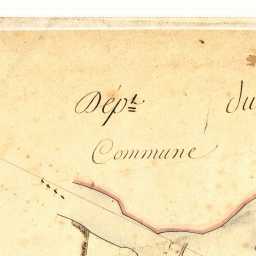 Dép.t du
Commune